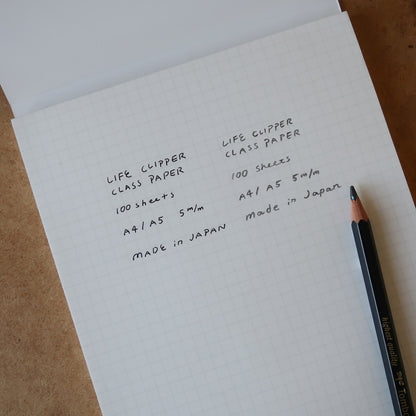 LIFE CLIPPER
CLASS PAPER
100 sheets
A4 / A5 5 m/m
MADE in JAPAN
LIFE CLIPPER
CLASS PAPER
100 sheets
A4 / A5 5 m/m
made in Japan
highest quality